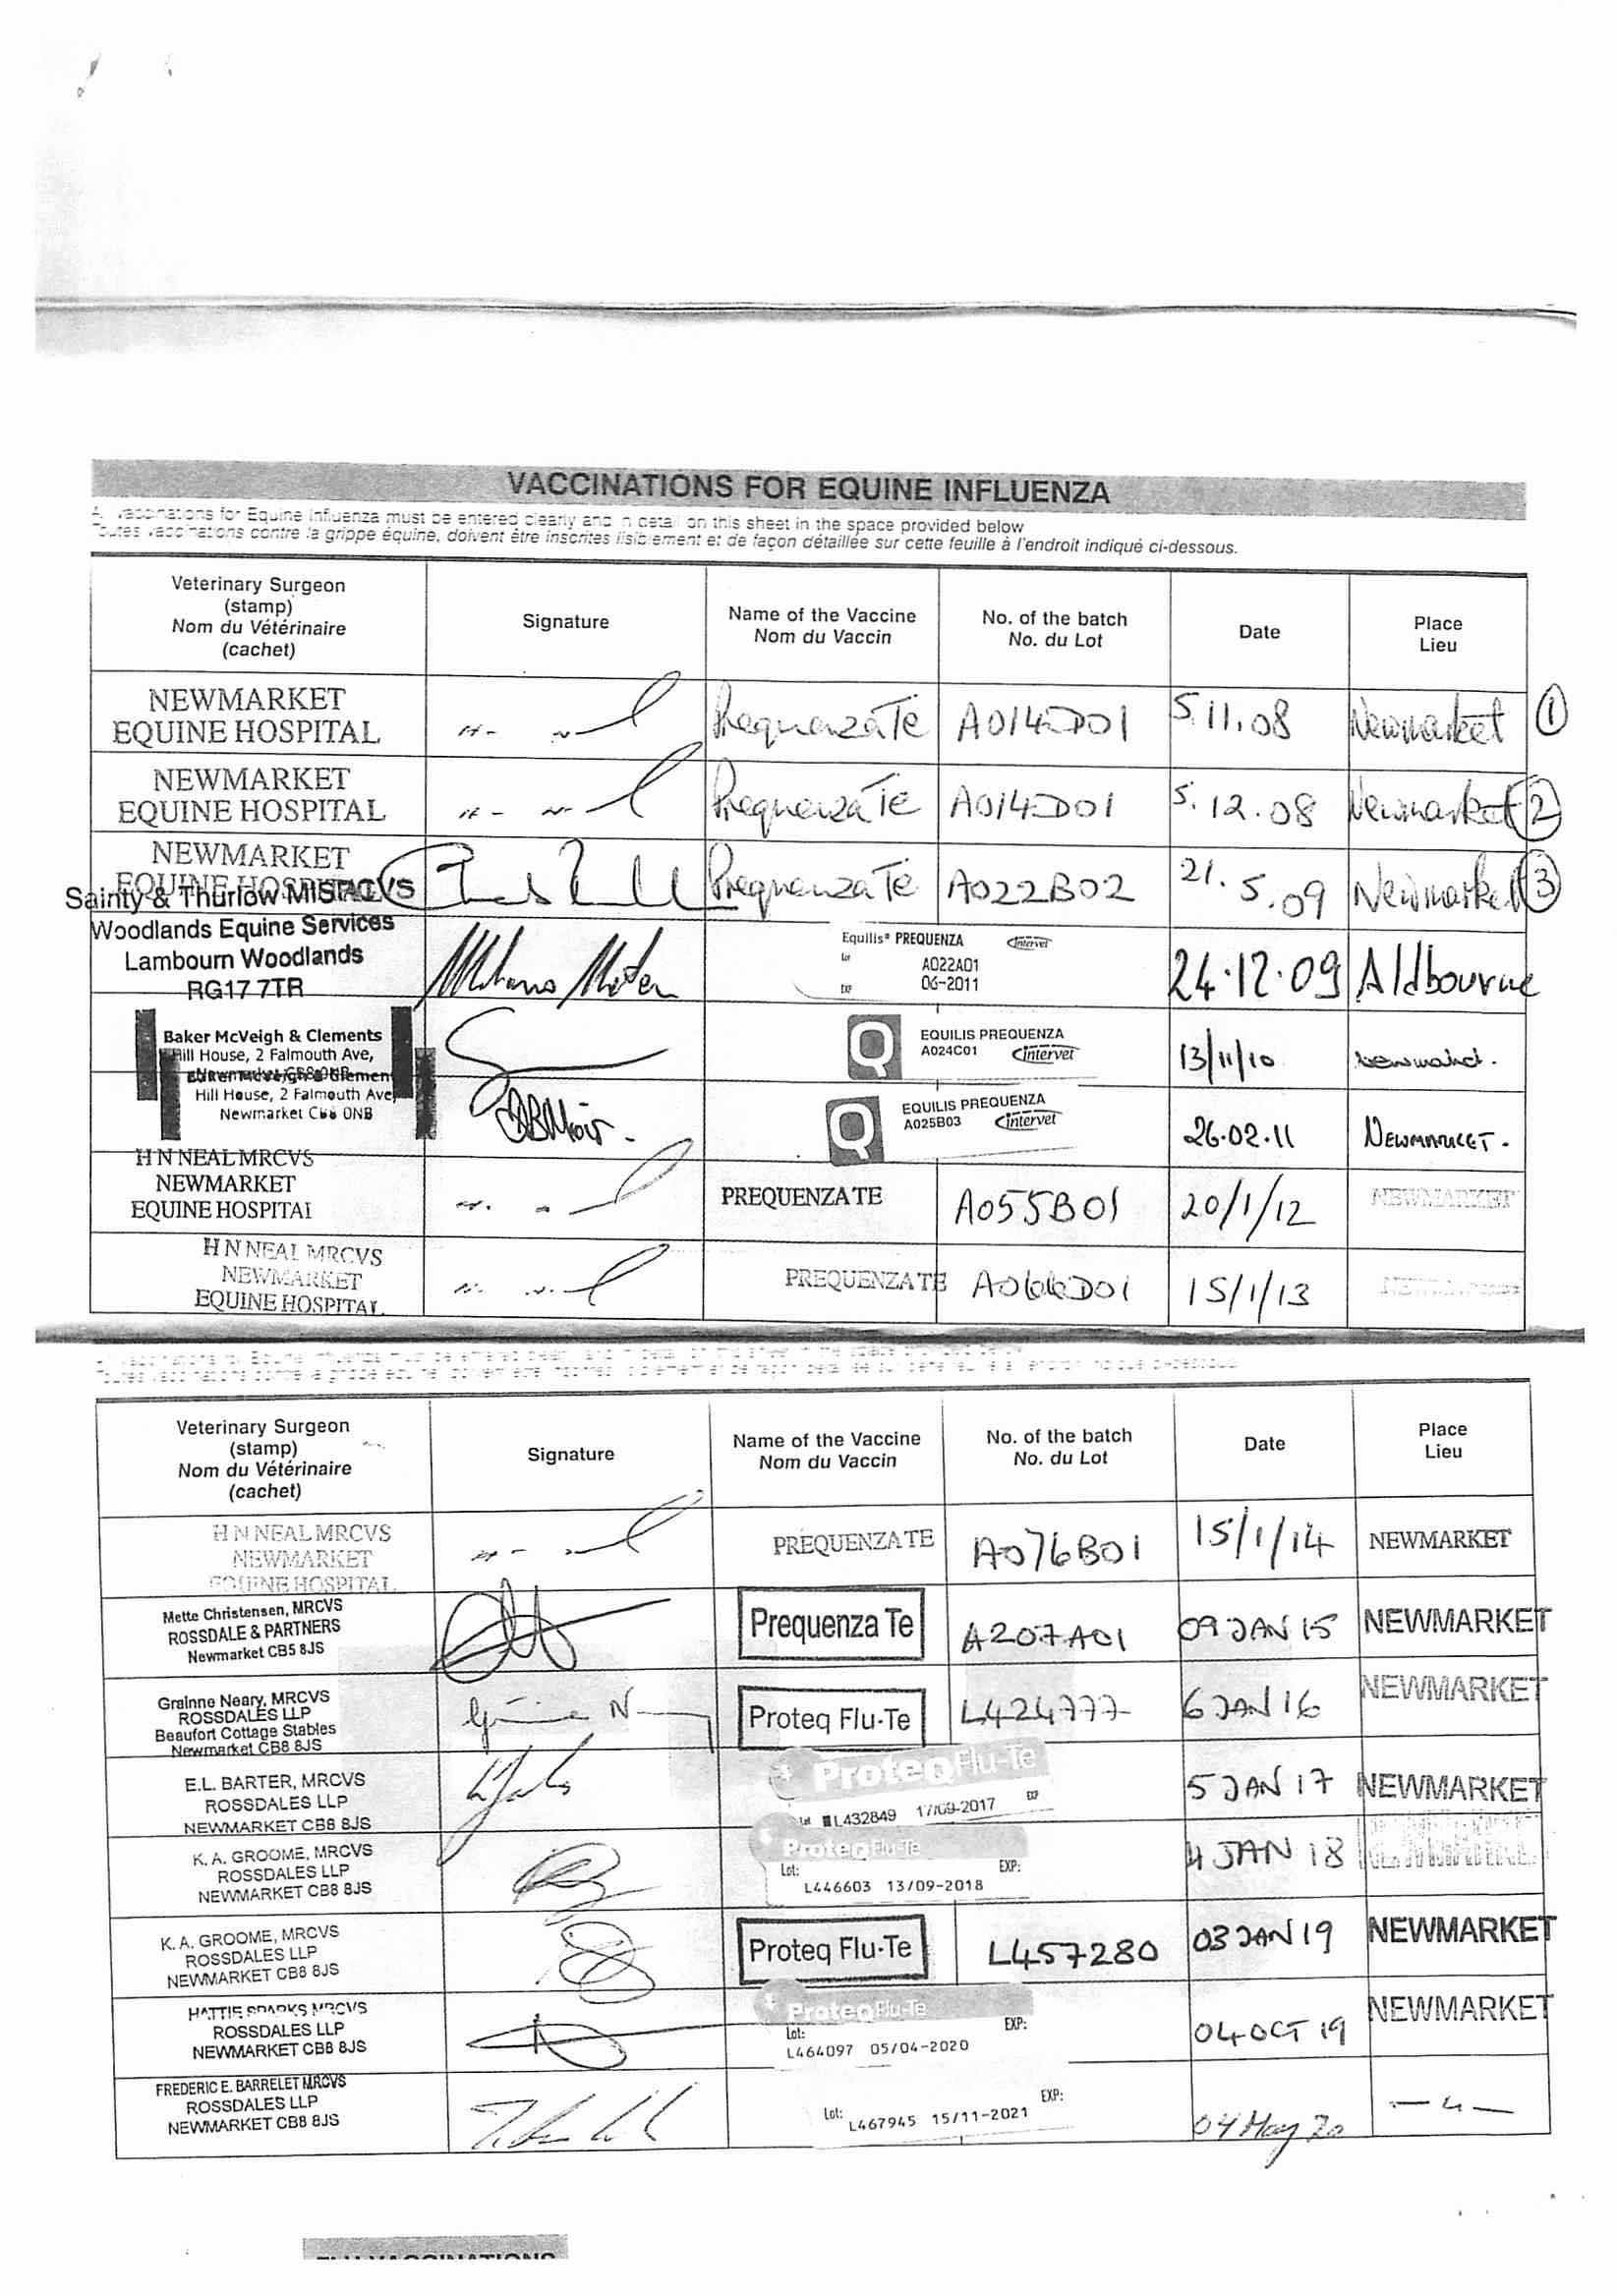 VACCINATIONS FOR EQUINE INFLUENZA
vaccinations for Equine Influenza must be entered clearly and in detail on this sheet in the space provided below
Toutes vaccinations contre la grippe équine, doivent être inscrites lisiblement et de façon détaillée sur cette feuille à l'endroit indiqué ci-dessous.
Veterinary Surgeon
(stamp)
Nom du Vétérinaire
(cachet)
Signature
Name of the Vaccine
Nom du Vaccin
No. of the batch
No. du Lot
Date
Place
Lieu
NEWMARKET
EQUINE HOSPITAL
Prequenza Te A014D01 5.11.08 Newmarket 1
NEWMARKET
EQUINE HOSPITAL
Prequenza Te A014D01 5.12.08 Newmarket 2
NEWMARKET
EQUINE HOSPITAL
Prequenza Te A022B02 21.5.09 Newmarket 3
Sainty & Thurlow MsRCVS
Woodlands Equine Services
Lambourn Woodlands
RG17 7TR
Equilis® PREQUENZA Intervet
Lot A022A01
EXP 06-2011
24.12.09 Aldbourne
Baker McVeigh & Clements
Hill House, 2 Falmouth Ave,
Newmarket CB8 0NB
EQUILIS PREQUENZA
A024C01 Intervet
13/11/10 Newmarket.
Baker McVeigh & Clements
Hill House, 2 Falmouth Ave,
Newmarket CB8 0NB
EQUILIS PREQUENZA
A025B03 Intervet
26.02.11 NEWMARKET.
H N NEAL MRCVS
NEWMARKET
EQUINE HOSPITAL
PREQUENZA TE A055B01 20/1/12 NEWMARKET
H N NEAL MRCVS
NEWMARKET
EQUINE HOSPITAL
PREQUENZA TE A066D01 15/1/13 NEWMARKET
Veterinary Surgeon
(stamp)
Nom du Vétérinaire
(cachet)
Signature
Name of the Vaccine
Nom du Vaccin
No. of the batch
No. du Lot
Date
Place
Lieu
H N NEAL MRCVS
NEWMARKET
EQUINE HOSPITAL
PREQUENZA TE A076B01 15/1/14 NEWMARKET
Mette Christensen, MRCVS
ROSSDALE & PARTNERS
Newmarket CB5 8JS
Prequenza Te A207A01 09 JAN 15 NEWMARKET
Grainne Neary, MRCVS
ROSSDALES LLP
Beaufort Cottage Stables
Newmarket CB8 8JS
Proteq Flu-Te L424777 6 JAN 16 NEWMARKET
E.L. BARTER, MRCVS
ROSSDALES LLP
NEWMARKET CB8 8JS
ProteqFlu-Te
L432849 17/09-2017
5 JAN 17 NEWMARKET
K. A. GROOME, MRCVS
ROSSDALES LLP
NEWMARKET CB8 8JS
ProteqFlu-Te
Lot: EXP:
L446603 13/09-2018
4 JAN 18 NEWMARKET
K. A. GROOME, MRCVS
ROSSDALES LLP
NEWMARKET CB8 8JS
Proteq Flu-Te L457280 03 JAN 19 NEWMARKET
HATTIE SPARKS MRCVS
ROSSDALES LLP
NEWMARKET CB8 8JS
ProteqFlu-Te
Lot: EXP:
L464097 05/04-2020
04 OCT 19 NEWMARKET
FREDERIC E. BARRELET MRCVS
ROSSDALES LLP
NEWMARKET CB8 8JS
Lot: EXP:
L467945 15/11-2021
04 May 20 — " —
FLU VACCINATIONS